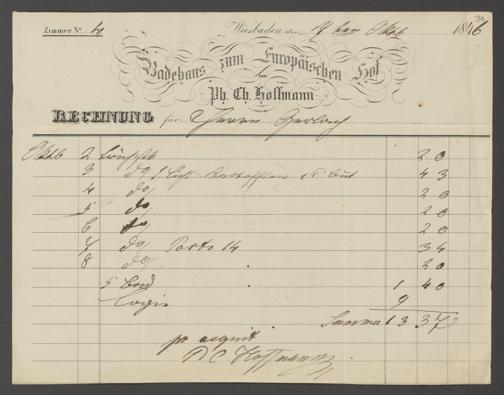 Zimmer No. 4 Wiesbaden den 7 1846
Badehaus zum Europäischen Hof
von
Ph. Ch. Hoffmann
RECHNUNG für Herrn Gerlach
Oktb 2 20
3 do 1 43
4 do 20
5 do 20
6 do 20
7 do Porto 14 34
8 do 20
5 Bad 1 40
Logis 9
Summa 13 37
pr acquit
P C Hoffmann